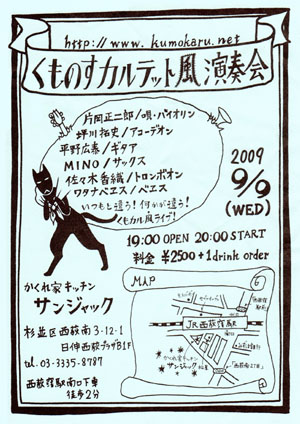 http://www.kumokaru.net
くものすカルテット風演奏会
片岡正二郎/唄・バイオリン
坪川拓史/アコーデオン
平野広泰/ギタア
MINO/サックス
佐々木香織/トロンボオン
ワタナベエス/ベエス
いつもと違う!何かが違う!
くもカル風ライブ!
2009
9/9
(WED)
19:00 OPEN 20:00 START
料金 ¥2500+1drink order
かくれ家キッチン
サンジャック
杉並区西荻南3-12-1
日伸西荻プラザB1F
tel. 03-3335-8787
西荻窪駅南口下車
徒歩2分
MAP
JR西荻窪駅
かくれ家キッチン
サンジャック